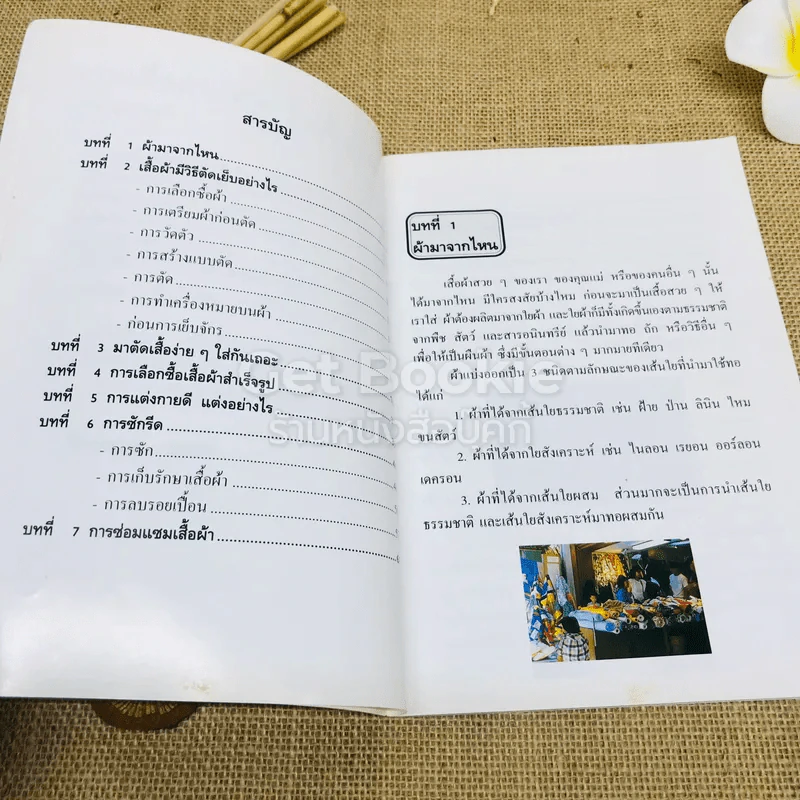 สารบัญ
บทที่ 1 ผ้ามาจากไหน
บทที่ 2 เสื้อผ้ามีวิธีตัดเย็บอย่างไร
- การเลือกซื้อผ้า
- การเตรียมผ้าก่อนตัด
- การวัดตัว
- การสร้างแบบตัด
- การตัด
- การทำเครื่องหมายบนผ้า
- ก่อนการเย็บจักร
บทที่ 3 มาตัดเสื้อง่าย ๆ ใส่กันเถอะ
บทที่ 4 การเลือกซื้อเสื้อผ้าสำเร็จรูป
บทที่ 5 การแต่งกายดี แต่งอย่างไร
บทที่ 6 การซักรีด
- การซัก
- การเก็บรักษาเสื้อผ้า
- การลบรอยเปื้อน
บทที่ 7 การซ่อมแซมเสื้อผ้า
บทที่ 1
ผ้ามาจากไหน
เสื้อผ้าสวย ๆ ของเรา ของคุณแม่ หรือของคนอื่น ๆ นั้น
ได้มาจากไหน มีใครสงสัยบ้างไหม ก่อนจะมาเป็นเสื้อสวย ๆ ให้
เราใส่ ผ้าต้องผลิตมาจากใยผ้า และใยผ้าก็มีทั้งเกิดขึ้นเองตามธรรมชาติ
จากพืช สัตว์ และสารอนินทรีย์ แล้วนำมาทอ ถัก หรือวิธีอื่น ๆ
เพื่อให้เป็นผืนผ้า ซึ่งมีขั้นตอนต่าง ๆ มากมายทีเดียว
ผ้าแบ่งออกเป็น 3 ชนิดตามลักษณะของเส้นใยที่นำมาใช้ทอ
ได้แก่
1. ผ้าที่ได้จากเส้นใยธรรมชาติ เช่น ฝ้าย ป่าน ลินิน ไหม
ขนสัตว์
2. ผ้าที่ได้จากใยสังเคราะห์ เช่น ไนลอน เรยอน ออร์ลอน
เดครอน
3. ผ้าที่ได้จากเส้นใยผสม ส่วนมากจะเป็นการนำเส้นใย
ธรรมชาติ และเส้นใยสังเคราะห์มาทอผสมกัน
Get Bookie
ร้านหนังสือบุ๊คกี้